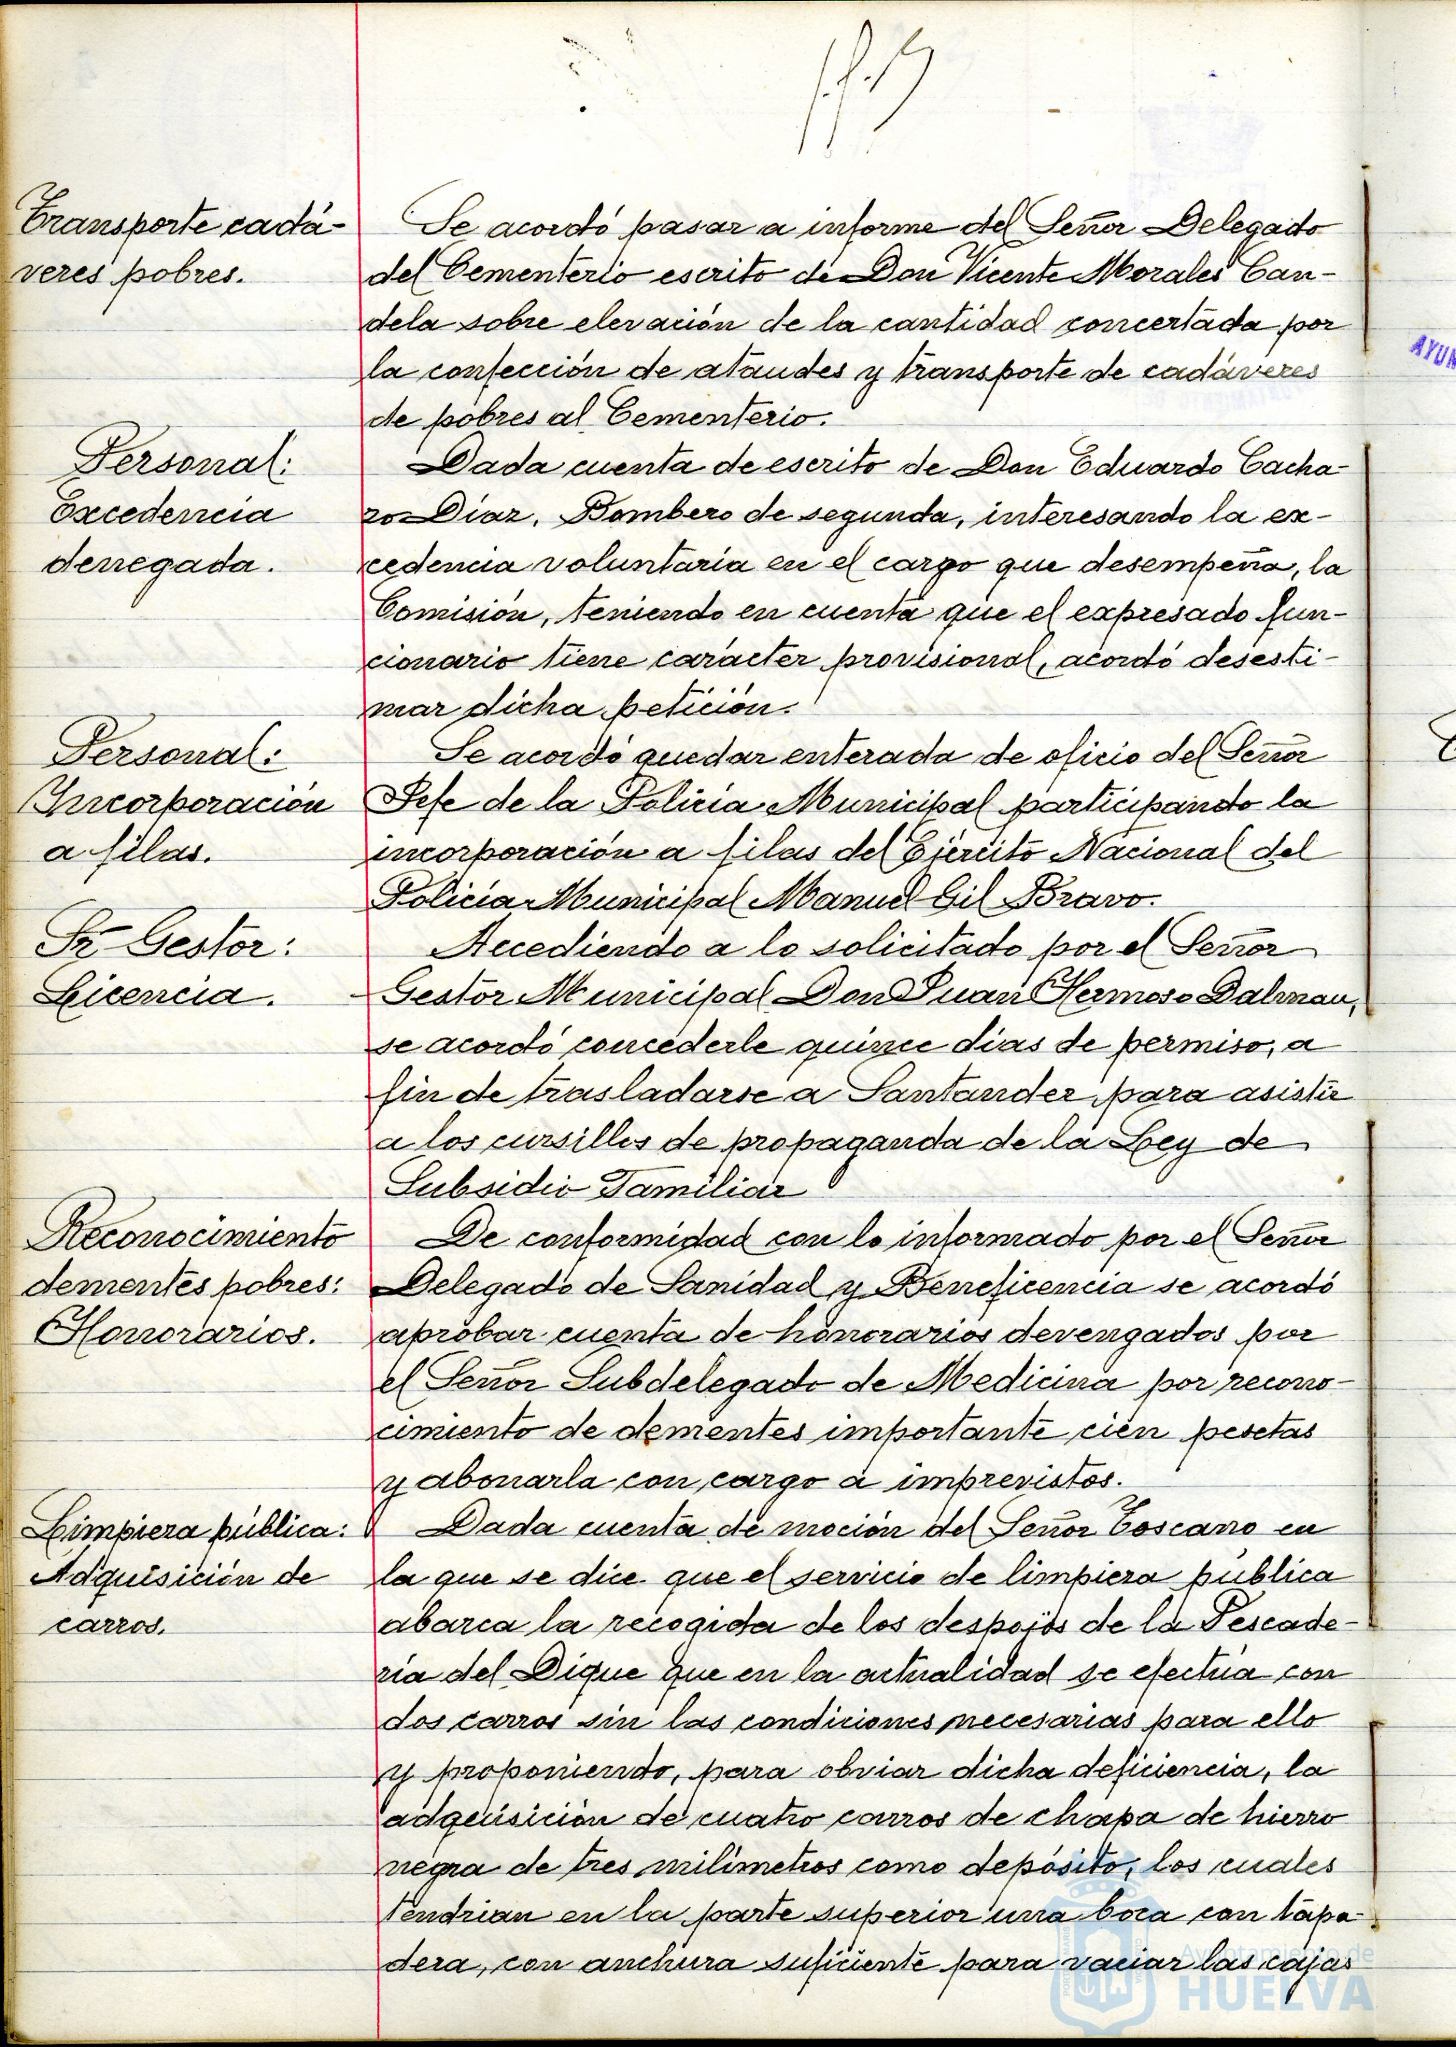 Transporte cadá-
veres pobres.
Se acordó pasar a informe del Señor Delegado
del Cementerio escrito de Don Vicente Morales Can-
dela sobre elevación de la cantidad concertada por
la confección de ataudes y transporte de cadáveres
de pobres al Cementerio.
Personal:
Excedencia
denegada.
Dada cuenta de escrito de Don Eduardo Cacha-
ro Díaz, Bombero de segunda, interesando la ex-
cedencia voluntaria en el cargo que desempeña, la
Comisión, teniendo en cuenta que el expresado fun-
cionario tiene carácter provisional, acordó desesti-
mar dicha petición.
Personal:
Incorporación
a filas.
Se acordó quedar enterada de oficio del Señor
Jefe de la Policía Municipal participando la
incorporación a filas del Ejército Nacional del
Policía Municipal Manuel Gil Bravo.
Sr Gestor:
Licencia.
Accediendo a lo solicitado por el Señor
Gestor Municipal Don Juan Hermoso Dalmau,
se acordó concederle quince días de permiso, a
fin de trasladarse a Santander para asistir
a los cursillos de propaganda de la Ley de
Subsidio Familiar
Reconocimiento
dementes pobres:
Honorarios.
De conformidad con lo informado por el Señor
Delegado de Sanidad y Beneficencia se acordó
aprobar cuenta de honorarios devengados por
el Señor Subdelegado de Medicina por recono-
cimiento de dementes importante cien pesetas
y abonarla con cargo a imprevistos.
Limpieza pública:
Adquisición de
carros.
Dada cuenta de moción del Señor Toscano en
la que se dice que el servicio de limpieza pública
abarca la recogida de los despojos de la Pescade-
ría del Dique que en la actualidad se efectúa con
dos carros sin las condiciones necesarias para ello
y proponiendo, para obviar dicha deficiencia, la
adquisición de cuatro carros de chapa de hierro
negra de tres milímetros como depósito, los cuales
tendrían en la parte superior una boca con tapa-
dera, con anchura suficiente para vaciar las cajas
Ayuntamiento de
HUELVA